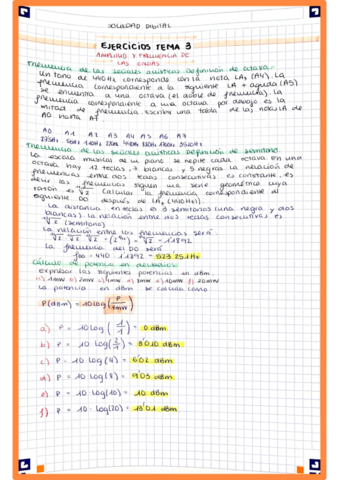 SOLEDAD DIGITAL
EJERCICIOS TEMA 3
AMPLITUD Y FRECUENCIA DE
LAS ONDAS.
Frecuencia de las señales acústicas Definición de octava.
Un tono de 440Hz corresponde con la nota LA3 (A4). La
frecuencia correspondiente a la siguiente LA + aguda (A5)
se encuentra a una octava (el doble de frecuencia). La
frecuencia correspondiente a una octava por debajo es la
mitad de frecuencia. Escribir una tabla de las notas LA de
A0 hasta A7
A0 A1 A2 A3 A4 A5 A6 A7
Frecuencia de las señales acústicas Definición de semitono.
La escala musical de un piano se repite cada octava. En una
octava hay 12 teclas, 7 blancas y 5 negras. La relación de
frecuencias entre dos teclas consecutivas es constante, es
decir las frecuencias siguen una serie geométrica cuya
razón es ¹²√2. Calcular la frecuencia correspondiente al
siguiente DO después de LA3 (440Hz).
La distancia en teclas es 3 semitonos (una negra y dos
blancas). La relación entre dos teclas consecutivas es
¹²√2 (semitono)
La relación entre las frecuencias será
¹²√2 · ¹²√2 · ¹²√2 = = 1'1892
La frecuencia del DO será
fDO = 440 · 1'1892 = 523'251Hz
Cálculo de potencia en decibelios
Expresar las siguientes potencias en dBm.
a) 1mW b) 2mW c) 4mW d) 8mW e) 10mW f) 20mW
La potencia en dBm se calcula como:
P(dBm) = 10 log (P/1mW)
a) P = 10 log (1/1) = 0 dBm
b) P = 10 log (2/1) = 3'010 dBm
c) P = 10 log (4) = 6'02 dBm
d) P = 10 · log (8) = 9'03 dBm
e) P = 10 · log (10) = 10 dBm
f) P = 10 · log (20) = 13'01 dBm